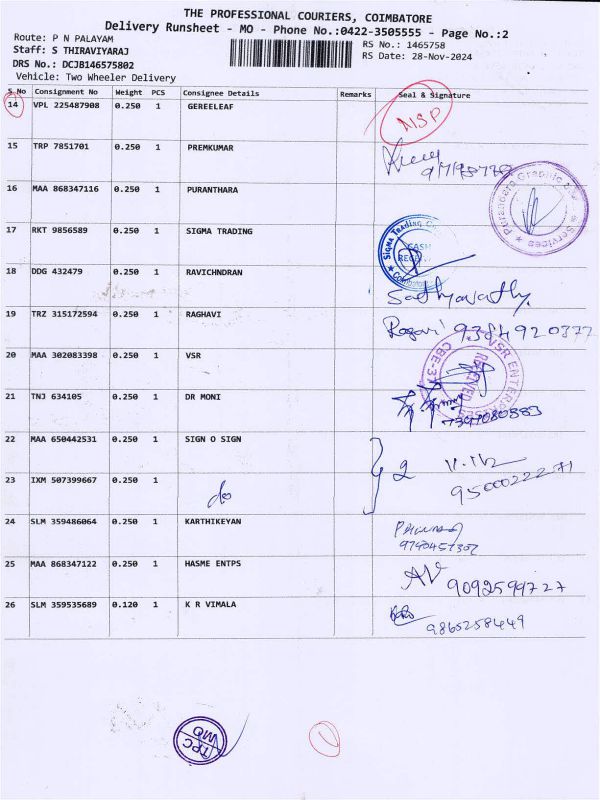 THE PROFESSIONAL COURIERS, COIMBATORE
Delivery Runsheet - MO - Phone No.:0422-3505555 - Page No.:2
Route: P N PALAYAM
RS No.: 1465758
Staff: S THIRAVIYARAJ
RS Date: 28-Nov-2024
DRS No.: DCJB146575802
Vehicle: Two Wheeler Delivery
S No Consignment No Weight PCS Consignee Details Remarks Seal & Signature
14 VPL 225487908 0.250 1 GEREELEAF NSP
15 TRP 7851701 0.250 1 PREMKUMAR
16 MAA 868347116 0.250 1 PURANTHARA
17 RKT 9856589 0.250 1 SIGMA TRADING
18 DDG 432479 0.250 1 RAVICHNDRAN Sathyavathy.
19 TRZ 315172594 0.250 1 RAGHAVI Ragavi 9384920377
20 MAA 302083398 0.250 1 VSR
21 TNJ 634105 0.250 1 DR MONI
22 MAA 650442531 0.250 1 SIGN O SIGN
23 IXM 507399667 0.250 1 do } 2
24 SLM 359486064 0.250 1 KARTHIKEYAN
25 MAA 868347122 0.250 1 HASME ENTPS AV 9092599727
26 SLM 359535689 0.120 1 K R VIMALA 9865258449
TPC
MO